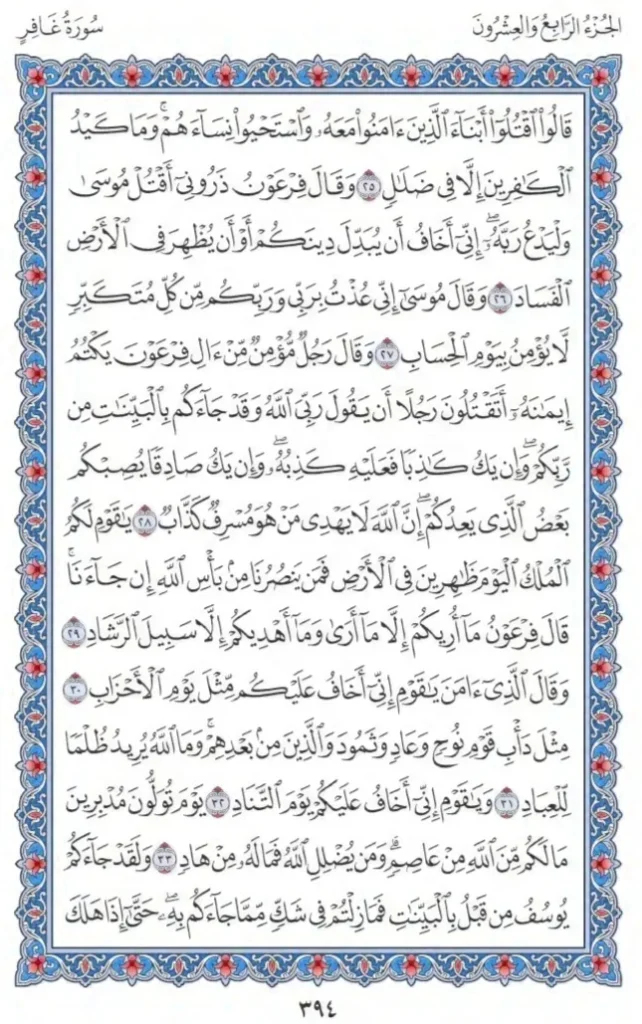 الجُزْءُ الرَّابِعُ وَالعِشْرُونَ
سُورَةُ غَافِرٍ
قَالُوا۟ ٱقْتُلُوٓا۟ أَبْنَآءَ ٱلَّذِينَ ءَامَنُوا۟ مَعَهُۥ وَٱسْتَحْيُوا۟ نِسَآءَهُمْۚ وَمَا كَيْدُ
ٱلْكَـٰفِرِينَ إِلَّا فِى ضَلَـٰلٍ ٢٥ وَقَالَ فِرْعَوْنُ ذَرُونِىٓ أَقْتُلْ مُوسَىٰ
وَلْيَدْعُ رَبَّهُۥٓۖ إِنِّىٓ أَخَافُ أَن يُبَدِّلَ دِينَكُمْ أَوْ أَن يُظْهِرَ فِى ٱلْأَرْضِ
ٱلْفَسَادَ ٢٦ وَقَالَ مُوسَىٰٓ إِنِّى عُذْتُ بِرَبِّى وَرَبِّكُم مِّن كُلِّ مُتَكَبِّرٍ
لَّا يُؤْمِنُ بِيَوْمِ ٱلْحِسَابِ ٢٧ وَقَالَ رَجُلٌ مُّؤْمِنٌ مِّنْ ءَالِ فِرْعَوْنَ يَكْتُمُ
إِيمَـٰنَهُۥٓ أَتَقْتُلُونَ رَجُلًا أَن يَقُولَ رَبِّىَ ٱللَّهُ وَقَدْ جَآءَكُم بِٱلْبَيِّنَـٰتِ مِن
رَّبِّكُمْۖ وَإِن يَكُ كَـٰذِبًا فَعَلَيْهِ كَذِبُهُۥۖ وَإِن يَكُ صَادِقًا يُصِبْكُم
بَعْضُ ٱلَّذِى يَعِدُكُمْۖ إِنَّ ٱللَّهَ لَا يَهْدِى مَنْ هُوَ مُسْرِفٌ كَذَّابٌ ٢٨ يَـٰقَوْمِ لَكُمُ
ٱلْمُلْكُ ٱلْيَوْمَ ظَـٰهِرِينَ فِى ٱلْأَرْضِ فَمَن يَنصُرُنَا مِنۢ بَأْسِ ٱللَّهِ إِن جَآءَنَاۚ
قَالَ فِرْعَوْنُ مَآ أُرِيكُمْ إِلَّا مَآ أَرَىٰ وَمَآ أَهْدِيكُمْ إِلَّا سَبِيلَ ٱلرَّشَادِ ٢٩
وَقَالَ ٱلَّذِىٓ ءَامَنَ يَـٰقَوْمِ إِنِّىٓ أَخَافُ عَلَيْكُم مِّثْلَ يَوْمِ ٱلْأَحْزَابِ ٣٠
مِثْلَ دَأْبِ قَوْمِ نُوحٍ وَعَادٍ وَثَمُودَ وَٱلَّذِينَ مِنۢ بَعْدِهِمْۚ وَمَا ٱللَّهُ يُرِيدُ ظُلْمًا
لِّلْعِبَادِ ٣١ وَيَـٰقَوْمِ إِنِّىٓ أَخَافُ عَلَيْكُمْ يَوْمَ ٱلتَّنَادِ ٣٢ يَوْمَ تُوَلُّونَ مُدْبِرِينَ
مَا لَكُم مِّنَ ٱللَّهِ مِنْ عَاصِمٍۗ وَمَن يُضْلِلِ ٱللَّهُ فَمَا لَهُۥ مِنْ هَادٍ ٣٣ وَلَقَدْ جَآءَكُمْ
يُوسُفُ مِن قَبْلُ بِٱلْبَيِّنَـٰتِ فَمَا زِلْتُمْ فِى شَكٍّ مِّمَّا جَآءَكُم بِهِۦۖ حَتَّىٰٓ إِذَا هَلَكَ
٣٩٤